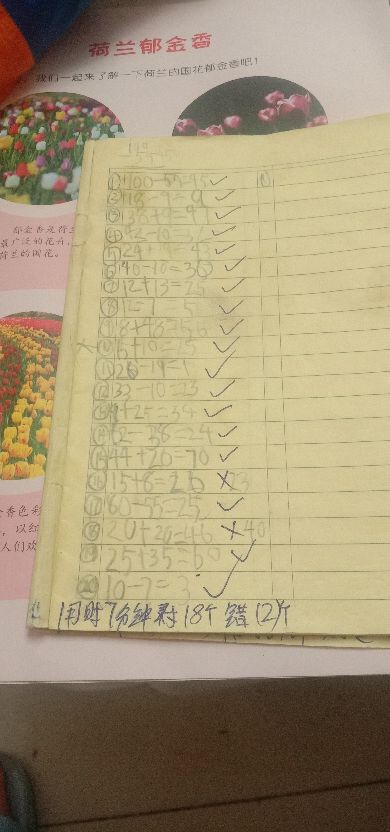 荷兰郁金香
我们一起来了解一下荷兰的国花郁金香吧!
郁金香是荷兰
最广泛的花卉,
荷兰的国花。
①100-55=45✓
②18-9=9✓
③
④
⑤
⑥40-10=30✓
⑦12+13=25✓
⑧12-7 5✓
⑨8+48=56✓
⑪20-19=1✓
⑫33-10=23✓
⑬9+25=34✓
⑭62-38=24✓
⑮44+26=70✓
⑯15+8=26×23
⑰80-55=25✓
⑱20+20=46×40
⑲25+35=60✓
⑳10-7=3✓
香色彩
,以红
人们欢
用时7分钟对18个错(2)个